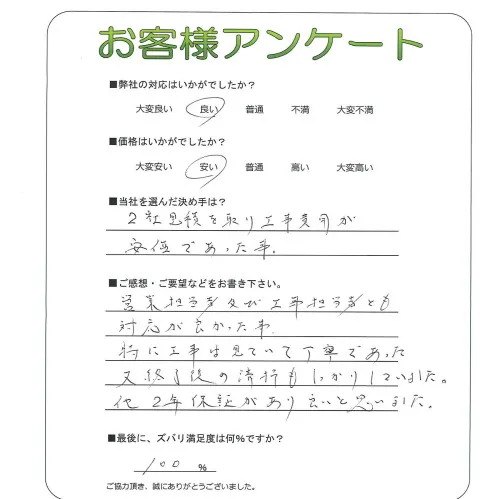 お客様アンケート
■弊社の対応はいかがでしたか？
大変良い 良い 普通 不満 大変不満
■価格はいかがでしたか？
大変安い 安い 普通 高い 大変高い
■当社を選んだ決め手は？
2社見積を取り工事費用が
安価であった事.
■ご感想・ご要望などをお書き下さい。
営業担当者及び工事担当者とも
対応が良かった事.
特に工事は見ていて丁寧であった
又終了後の清掃もしっかりしていました。
他2年保証があり良いと思いました.
■最後に、ズバリ満足度は何%ですか？
100 %
ご協力頂き、誠にありがとうございました。